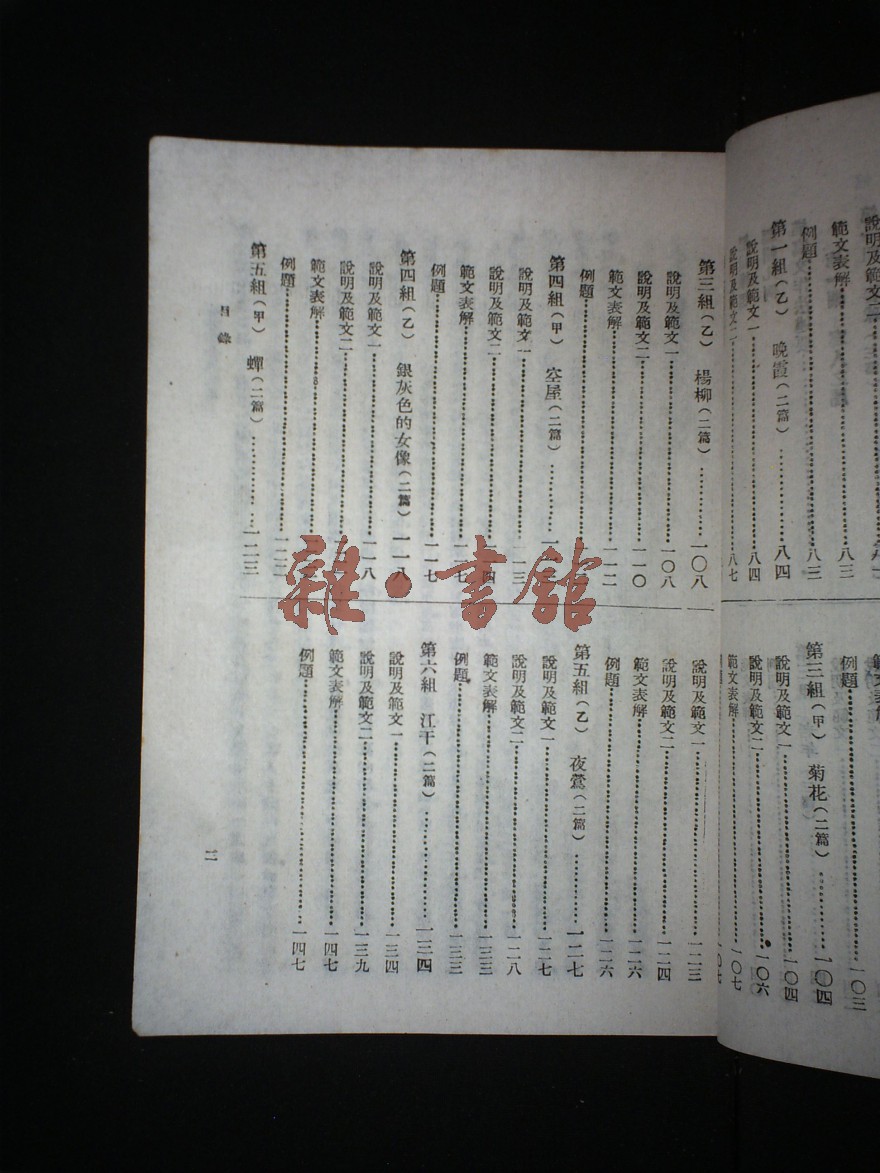 說明及範文二……
範文表解……八三
例題……八三
第一組(乙) 晚霞(二篇)……八四
說明及範文一……八四
說明及範文二……八七
範文表解
例題……一〇三
第三組(甲) 菊花(二篇)……一〇四
說明及範文一……一〇四
說明及範文二……一〇六
範文表解……一〇七
第三組(乙) 楊柳(二篇)……一〇八
說明及範文一……一〇八
說明及範文二……一一〇
範文表解……一一二
例題……
第四組(甲) 空屋(二篇)……
說明及範文一……一一三
說明及範文二……一一四
範文表解……一一七
例題……一一七
第四組(乙) 銀灰色的女像(二篇)一一八
說明及範文一……一一八
說明及範文二……
範文表解……
例題……一二二
第五組(甲) 蟬(二篇)……一二三
說明及範文一……一二三
說明及範文二……一二四
範文表解……一二六
例題……一二六
第五組(乙) 夜鶯(二篇)……一二七
說明及範文一……一二七
說明及範文二……一二八
範文表解……一三三
例題……一三三
第六組 江干(二篇)……一三四
說明及範文一……一三四
說明及範文二……一三九
範文表解……一四七
例題……一四七
目錄
二
雜·書館